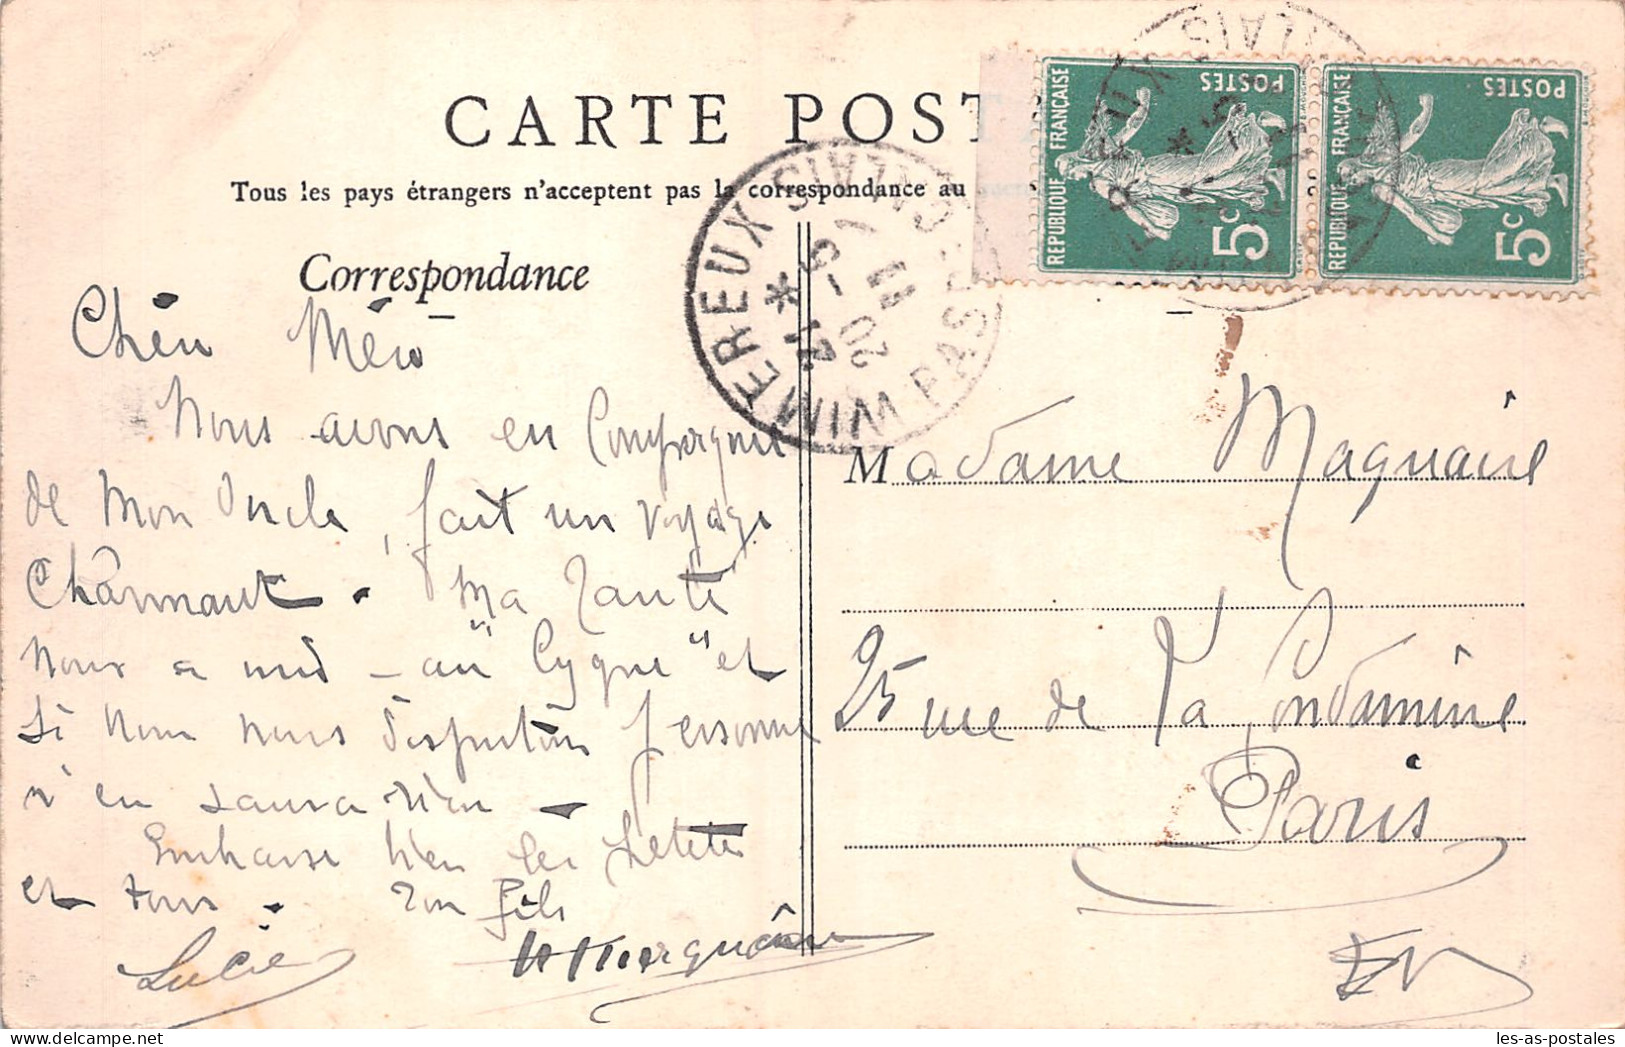 CARTE POST
Tous les pays étrangers n'acceptent pas la correspondance au
Correspondance
Chère Mère
Nous avons en Compagnie
de mon Oncle, fait un voyage
Charmant. Ma Tante
nous a mis - au "Cygne" et
si nous nous disputions personne
n'en saura rien -
Embrasse bien les
et tous. Ton fils
Lucie
Madame Maquaire
25 rue de La Condamine
Paris
EV
REPUBLIQUE FRANÇAISE
POSTES
5c
REPUBLIQUE FRANÇAISE
POSTES
5c
WIMEREUX PAS-DE-CALAIS
21 * 5-1
20
11
les-as-postales